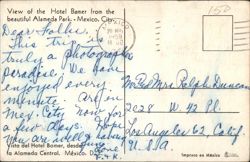 View of the Hotel Bamer from the
beautiful Alameda Park. - Mexico, City.
150
Dear Folks:
This trip is
truly a photographers
paradise. We have
enjoyed every
minute. Are in
Mex. City now for
a few days.
You are well & having
fun
Mr and Mrs. Ralph Duncan
2028 W. 42 Pl.
Los Angeles 62, Calif
U.S.A
Vista del Hotel Bamer, desde
la Alameda Central. México, D.F.
Impreso en México